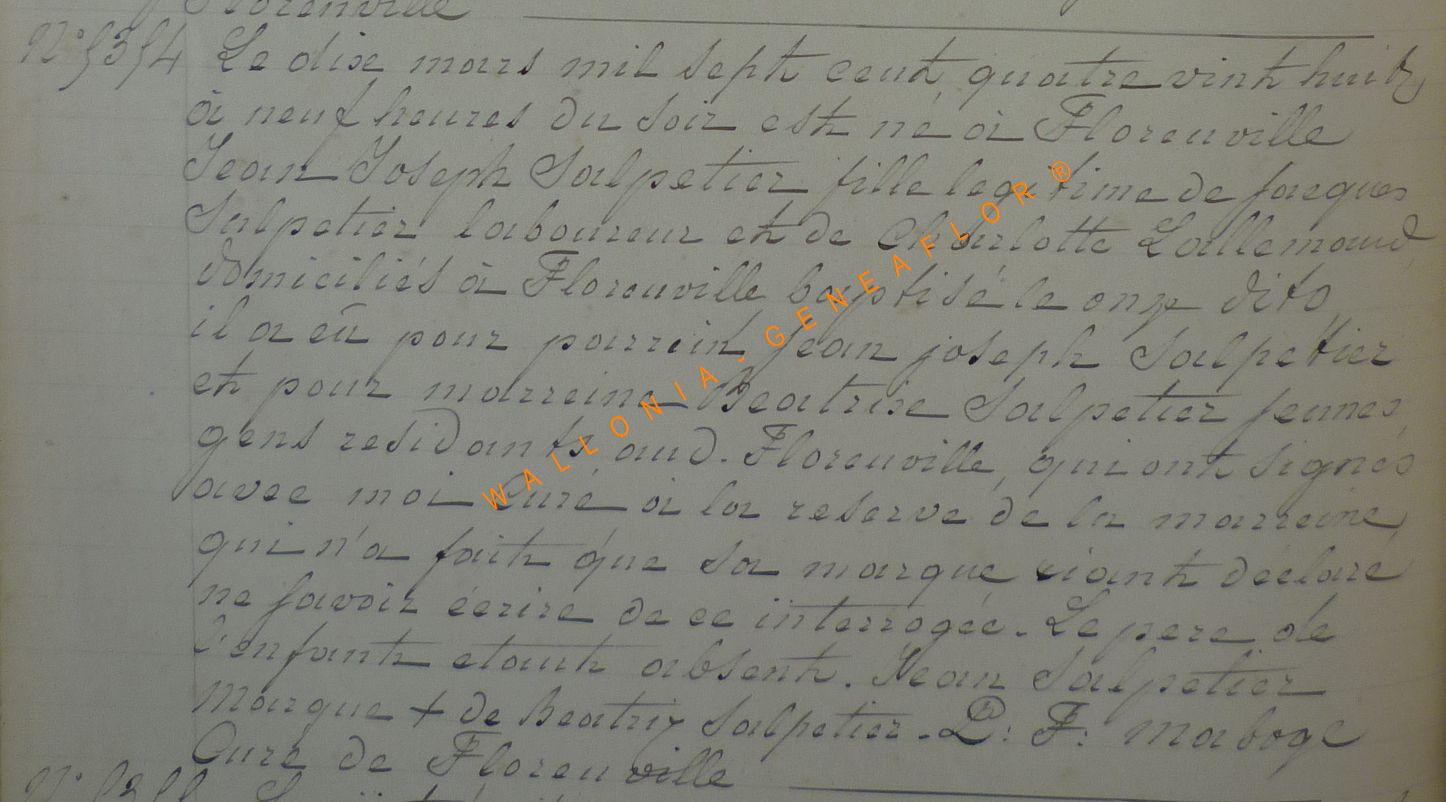 Florenville
N° 5354 Le dix mars mil sept cent quatre vint huit
à neuf heures du soir est né à Florenville
Jean Joseph Salpetier fille legitime de jacques
Salpetier laboureur et de Charlotte Lallemand
domiciliés à Florenville baptisé le onze dito
il a eû pour parrein jean joseph Salpetier
et pour marreine Beatrixe Salpetier jeunes
gens residants aud. Florenville, qui ont signés
avec moi Curé à la reserve de la marreine,
qui n'a fait que sa marque, aiant déclaré
ne savoir écrire de ce interrogée. Le pere de
l'enfant etant absent. Jean Salpetier
Marque + de Beatrix Salpetier. P: F: Maboge
Curé de Florenville
WALLONIA-GENEAFLOR®